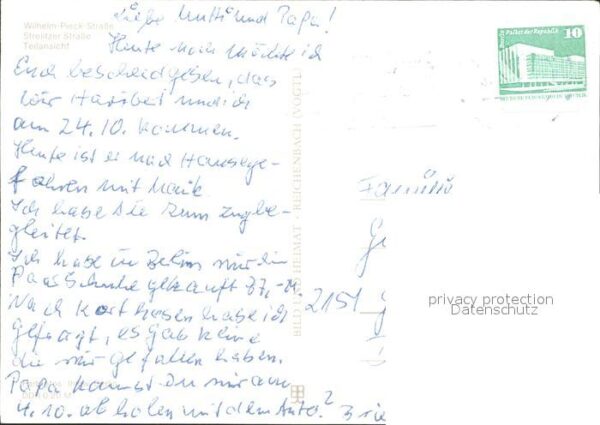 Wilhelm-Pieck-Straße
Strelitzer Straße
Teilansicht
Liebe Mutti und Papa!
Heute noch möchte ich
Euch bescheid geben, das
wir Haribet und ich
am 24.10. kommen.
Heute ist er nach Hause ge-
fahren mit Maik
Ich habe sie zum zug be-
gleitet.
Ich habe in Berlin mir ein
Paar Schuhe gekauft 37,- M.
Nach Kort hosen habe ich
gefragt, es gab keine
die mir gefallen haben.
Papa kannst Du mir am
4.10. ab holen mit dem Auto?
BILD UND HEIMAT REICHENBACH (VOGTL)
Berlin Palast der Republik
10
Familie
2151
privacy protection
Datenschutz